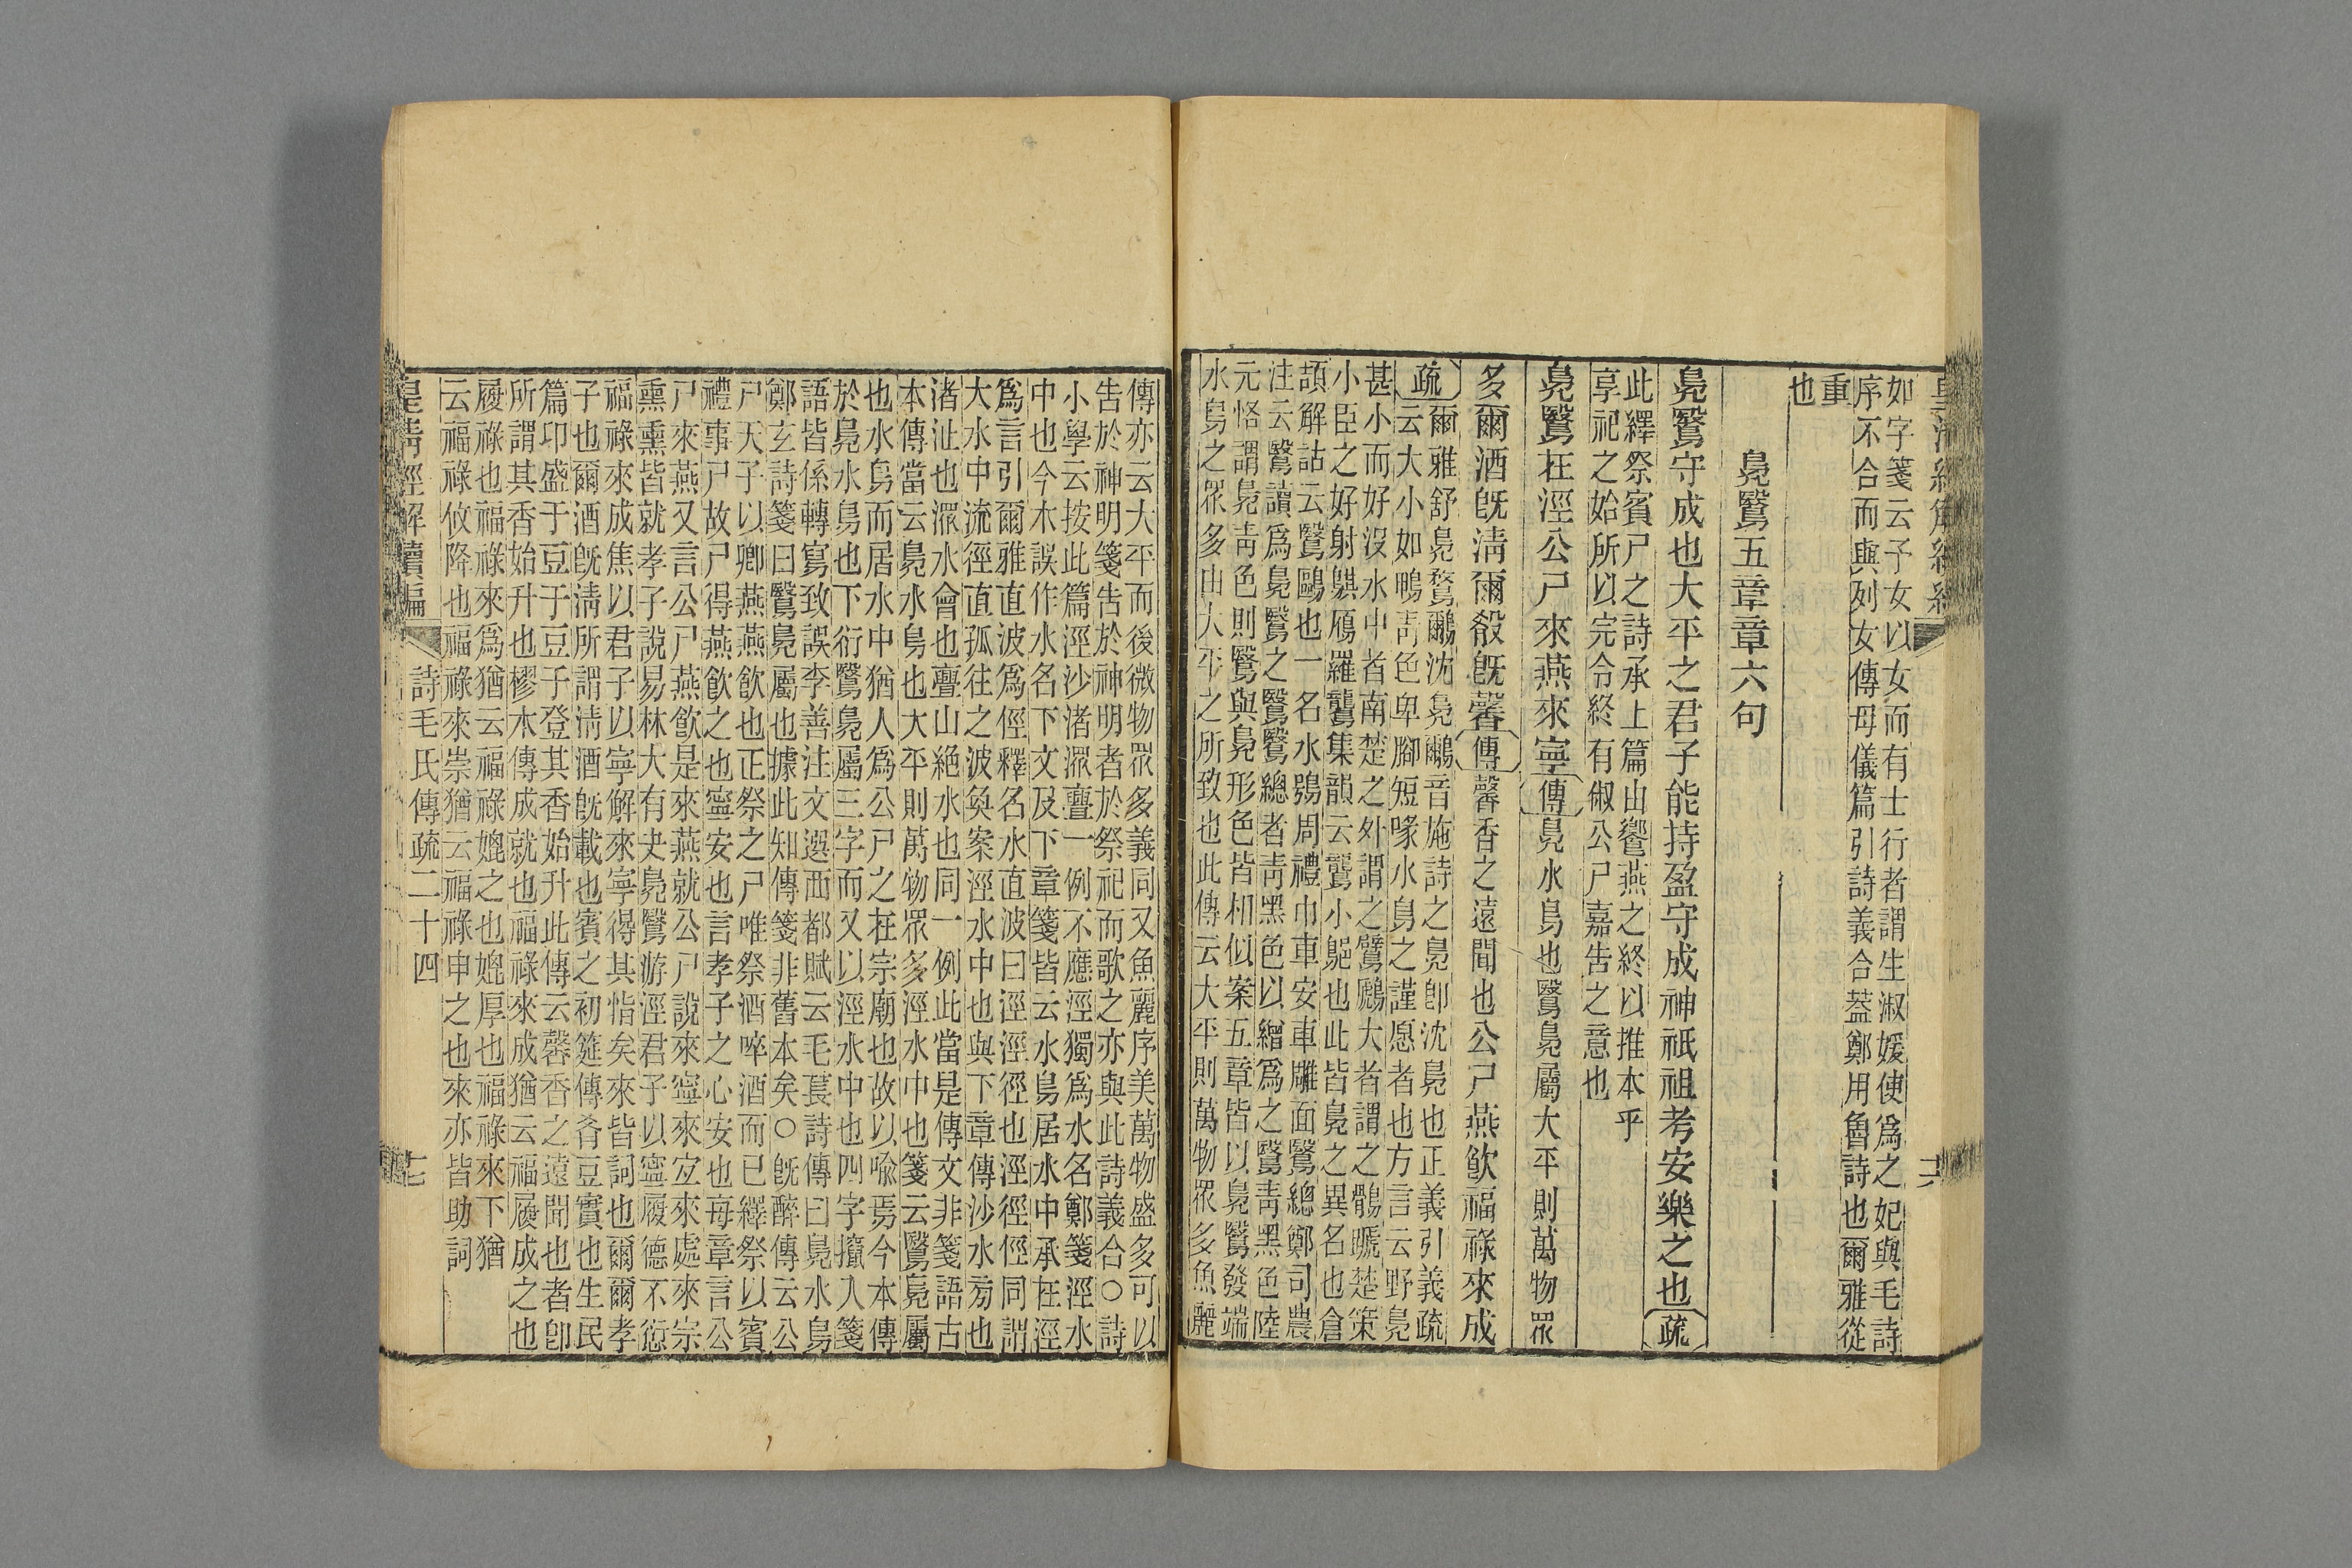 如字箋云子女以女而有士行者謂生淑媛使爲之妃與毛詩
序不合而與列女傳母儀篇引詩義合葢鄭用魯詩也爾雅從
重
也
鳧鷖五章章六句
鳧鷖守成也大平之君子能持盈守成神祇祖考安樂之也疏
此繹祭賓尸之詩承上篇由饗燕之終以推本乎
享祀之始所以完令終有俶公尸嘉告之意也
鳧鷖在涇公尸來燕來寧傳鳧水鳥也鷖鳧屬大平則萬物眾
多爾酒旣淸爾殽旣馨傳馨香之遠聞也公尸燕飮福祿來成
疏爾雅舒鳧鶩鸍沈鳧鸍音施詩之鳧卽沈鳧也正義引義疏
云大小如鴨靑色卑腳短喙水鳥之謹愿者也方言云野鳧
甚小而好沒水中者南楚之外謂之鷿鷈大者謂之鶻蹏楚策
小臣之好射鶀鴈羅鸗集韻云鸗小鳧也此皆鳧之異名也倉
頡解詁云鷖鷗也一名水鴞周禮巾車安車雕面鷖總鄭司農
注云鷖讀爲鳧鷖之鷖鷖總者靑黑色以繒爲之鷖靑黑色陸
元恪謂鳧靑色則鷖與鳧形色皆相似案五章皆以鳧鷖發端
水鳥之眾多由大平之所致也此傳云大平則萬物眾多魚麗
傳亦云大平而後微物眾多義同又魚麗序美萬物盛多可以
告於神明箋告於神明者於祭祀而歌之亦與此詩義合○詩
小學云按此篇涇沙渚潀亹一例不應涇獨爲水名鄭箋涇水
中也今本誤作水名下文及下章箋皆云水鳥居水中承在涇
爲言引爾雅直波爲徑釋名水直波曰涇涇徑也涇徑徑同謂
大水中流徑直孤往之波奐案涇水中也與下章傳沙水旁也
渚沚也潀水會也亹山絕水也同一例此當是傳文非箋語古
本傳當云鳧水鳥也大平則萬物眾多涇水中也箋云鷖鳧屬
也水鳥而居水中猶人爲公尸之在宗廟也故以喻焉今本傳
於鳧水鳥也下衍鷖鳧屬三字而又以涇水中也四字攛入箋
語皆係轉寫致誤李善注文選西都賦云毛萇詩傳曰鳧水鳥
鄭玄詩箋曰鷖鳧屬也據此知傳箋非舊本矣○旣醉傳云公
尸天子以卿燕燕飮也正祭之尸唯祭酒啐酒而已繹祭以賓
禮事尸故尸得燕飮之也寧安也言孝子之心安也每章言公
尸來燕又言公尸燕飮是來燕就公尸說來寧來宜來處來宗
熏熏皆就孝子說易林大有夬鳧鷖游涇君子以寧履德不愆
福祿來成焦以君子以寧解來寧得其恉矣來皆詞也爾爾孝
子也爾酒旣淸所謂淸酒旣載也賓之初筵傳肴豆實也生民
篇卬盛于豆于豆于登其香始升此傳云馨香之遠聞也者卽
所謂其香始升也樛木傳成就也福祿來成猶云福履成之也
履祿也福祿來爲猶云福祿媲之也媲厚也福祿來下猶
云福祿攸降也福祿來崇猶云福祿申之也來亦皆助詞
皇淸經解續編
詩毛氏傳疏二十四